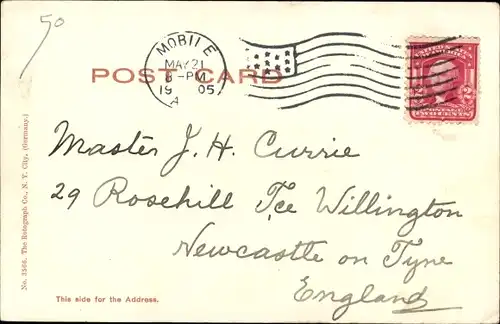 50
MOBILE
MAY 21
8-PM
19 05
A
POST CARD
TWO CENTS
Master J. H. Currie
29 Rosehill Tce Willington
Newcastle on Tyne
England
This side for the Address.
No. 3566. The Rotograph Co., N. Y. City. (Germany.)